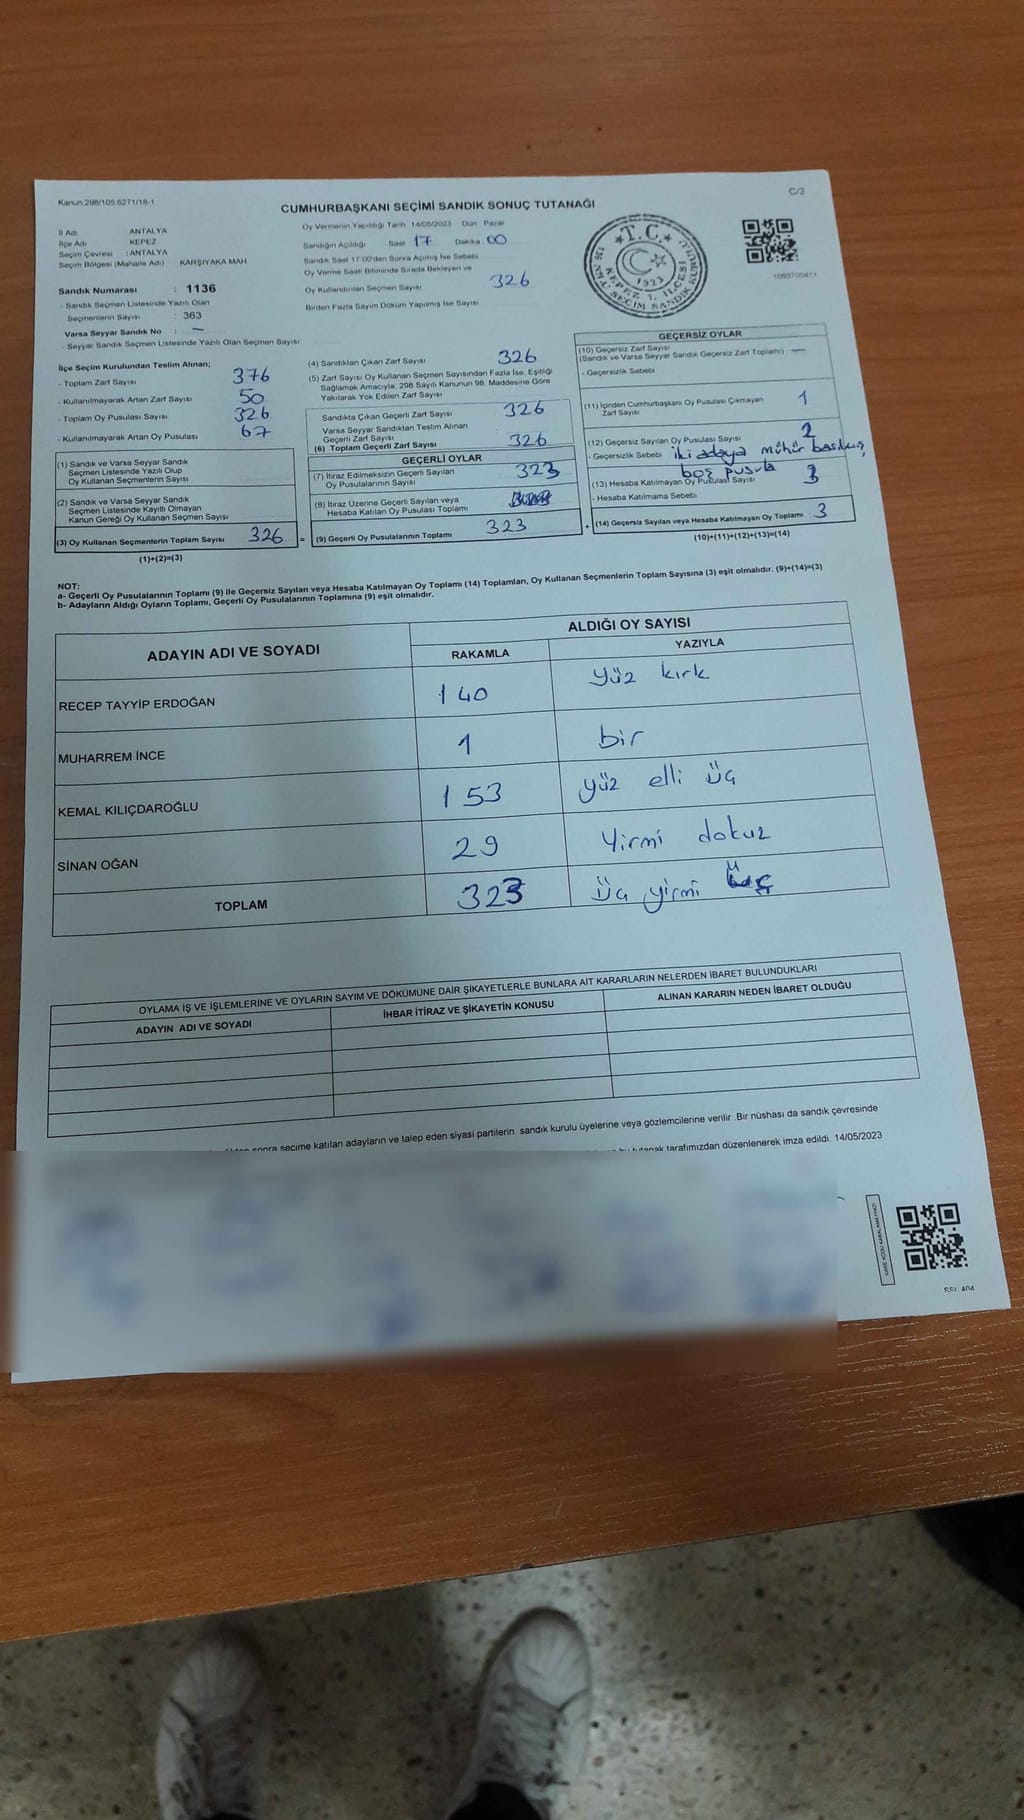 Kanun,298/105:6271/18-1
C/2
CUMHURBAŞKANI SEÇİMİ SANDIK SONUÇ TUTANAĞI
İl Adı ANTALYA
İlçe Adı KEPEZ
Seçim Çevresi : ANTALYA
Seçim Bölgesi (Mahalle Adı) KARŞIYAKA MAH.
Sandık Numarası : 1136
- Sandık Seçmen Listesinde Yazılı Olan
Seçmenlerin Sayısı : 363
Varsa Seyyar Sandık No : —
- Seyyar Sandık Seçmen Listesinde Yazılı Olan Seçmen Sayısı:
Oy Vermenin Yapıldığı Tarih 14/05/2023 Gün : Pazar
Sandığın Açıldığı Saat 17 Dakika 00
Sandık Saat 17:00'den Sonra Açılmış İse Sebebi
Oy Verme Saati Bitiminde Sırada Bekleyen ve
Oy Kullandırılan Seçmen Sayısı 326
Birden Fazla Sayım Döküm Yapılmış İse Sayısı
T.C.
1923
KEPEZ 1. İLÇESİ
1136 NOLU SEÇİM SANDIK KURULU
İlçe Seçim Kurulundan Teslim Alınan;
- Toplam Zarf Sayısı 376
- Kullanılmayarak Artan Zarf Sayısı 50
- Toplam Oy Pusulası Sayısı 326
- Kullanılmayarak Artan Oy Pusulası 67
(1) Sandık ve Varsa Seyyar Sandık
Seçmen Listesinde Yazılı Olup
Oy Kullanan Seçmenlerin Sayısı
(2) Sandık ve Varsa Seyyar Sandık
Seçmen Listesinde Kayıtlı Olmayan
Kanun Gereği Oy Kullanan Seçmen Sayısı
(3) Oy Kullanan Seçmenlerin Toplam Sayısı 326
(1)+(2)=(3)
(4) Sandıktan Çıkan Zarf Sayısı 326
(5) Zarf Sayısı Oy Kullanan Seçmen Sayısından Fazla İse, Eşitliği
Sağlamak Amacıyla, 298 Sayılı Kanunun 98. Maddesine Göre
Yakılarak Yok Edilen Zarf Sayısı
Sandıkta Çıkan Geçerli Zarf Sayısı 326
Varsa Seyyar Sandıktan Teslim Alınan
Geçerli Zarf Sayısı
(6) Toplam Geçerli Zarf Sayısı 326
GEÇERLİ OYLAR
(7) İtiraz Edilmeksizin Geçerli Sayılan
Oy Pusulalarının Sayısı 323
(8) İtiraz Üzerine Geçerli Sayılan veya
Hesaba Katılan Oy Pusulası Toplamı
= (9) Geçerli Oy Pusulalarının Toplamı 323
GEÇERSİZ OYLAR
(10) Geçersiz Zarf Sayısı
(Sandık ve Varsa Seyyar Sandık Geçersiz Zarf Toplamı) —
- Geçersizlik Sebebi
(11) İçinden Cumhurbaşkanı Oy Pusulası Çıkmayan
Zarf Sayısı 1
(12) Geçersiz Sayılan Oy Pusulası Sayısı 2
- Geçersizlik Sebebi iki adaya mühür basılmış,
boş pusula
(13) Hesaba Katılmayan Oy Pusulası Sayısı 3
- Hesaba Katılmama Sebebi
+ (14) Geçersiz Sayılan veya Hesaba Katılmayan Oy Toplamı 3
(10)+(11)+(12)+(13)=(14)
NOT:
a- Geçerli Oy Pusulalarının Toplamı (9) ile Geçersiz Sayılan veya Hesaba Katılmayan Oy Toplamı (14) Toplamları, Oy Kullanan Seçmenlerin Toplam Sayısına (3) eşit olmalıdır. (9)+(14)=(3)
b- Adayların Aldığı Oyların Toplamı, Geçerli Oy Pusulalarının Toplamına (9) eşit olmalıdır.
ADAYIN ADI VE SOYADI
ALDIĞI OY SAYISI
RAKAMLA YAZIYLA
RECEP TAYYİP ERDOĞAN 140 yüz kırk
MUHARREM İNCE 1 bir
KEMAL KILIÇDAROĞLU 153 yüz elli üç
SİNAN OĞAN 29 Yirmi dokuz
TOPLAM 323 üç yirmi üç
OYLAMA İŞ VE İŞLEMLERİNE VE OYLARIN SAYIM VE DÖKÜMÜNE DAİR ŞİKAYETLERLE BUNLARA AİT KARARLARIN NELERDEN İBARET BULUNDUKLARI
ADAYIN ADI VE SOYADI
İHBAR İTİRAZ VE ŞİKAYETİN KONUSU
ALINAN KARARIN NEDEN İBARET OLDUĞU
sonra seçime katılan adayların ve talep eden siyasi partilerin sandık kurulu üyelerine veya gözlemcilerine verilir. Bir nüshası da sandık çevresinde
bu tutanak tarafımızdan düzenlenerek imza edildi. 14/05/2023